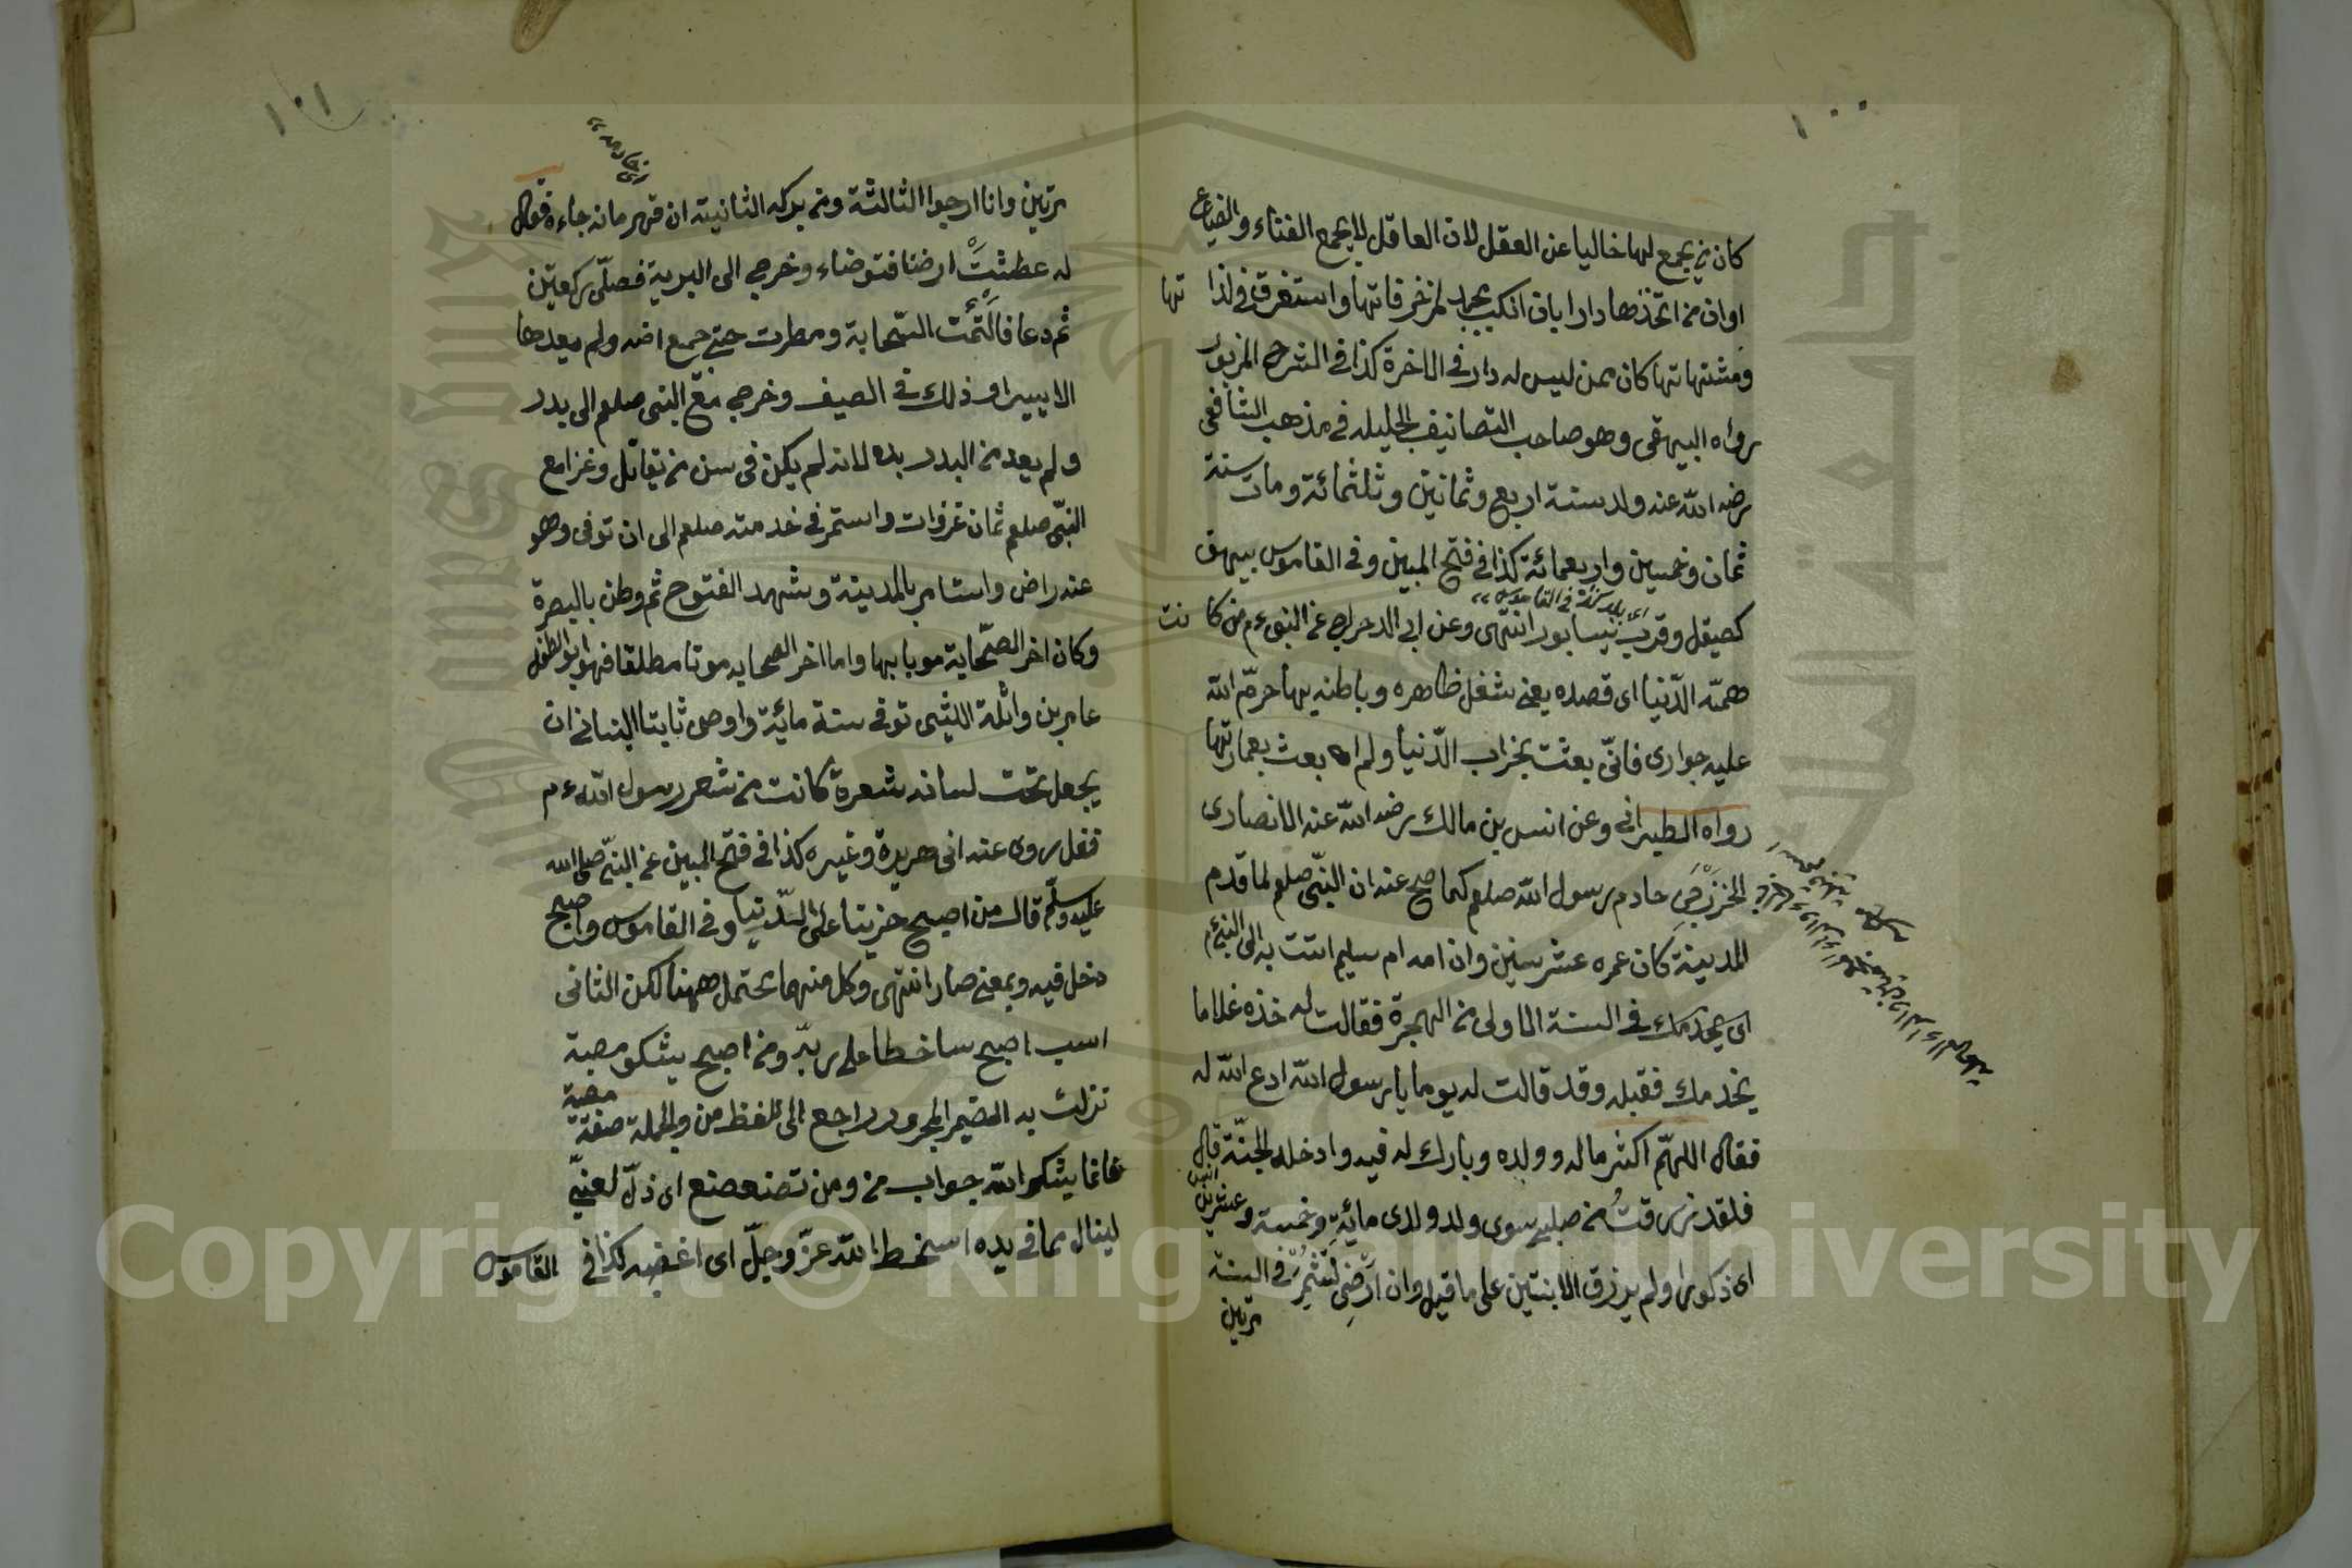 ١٠٠
كان من يجمع لها خاليا عن العقل لان العاقل لا يجمع الفناء والضياع
اوان من اتخذها دارا بان انكب بحيد لمزخرفاتها واستغرق في لذا تها
ومشتهاتها كان ممن ليس له دار في الاخرة كذا في الشرح المزبور
رواه البيهقى وهو صاحب التصانيف الجليله في مذهب الشافعى
رضه الله عنه ولد سنة اربع وثمانين وثلثمائة ومات سنة
ثمان وخمسين واربعمائة كذا في فتح المبين وفى القاموس بيهق
اى بلد كذا في القاموس
كصيقل وقرب نيسابور انتهى وعن ابى الدحراج عن النبى ءم من كا نت
همته الدّنيا اى قصده يعنى شغل ظاهره وباطنه بها حرّم الله
عليه جوارى فانّى بعثت بخراب الدّنيا ولم ابعث بعمارتها
رواه الطبرانى وعن انس بن مالك رضه الله عنه الانصارى
الخزرجى خادم رسول الله صلعم كما صح عنه ان النبّى صلعم لما قدم
المدينة كان عمره عشر سنين وان امه ام سليم اتت به الى النبىءم
اى يخدمك في السنة الاولى من الهجرة فقالت له خذه غلاما
يخدمك فقبله وقد قالت له يوما يا رسول الله ادع الله له
فقال اللهمّ اكثر ماله وولده وبارك له فيه وادخله الجنّة قال
انس
فلقد رزقت من صلبى سوى ولد ولدى مائةٍ وخمسة وعشرين
اى ذكورا ولم يرزق الا بنتين على ما قيل وان ارضى لتثمر في السنة
مرتين
١٠١
مرتين وانا ارجوا الثالثة ومن بركه الثانية ان قهرمانه جاءه فقال
له عطشت ارضنا فتوضاء وخرج الى البرية فصلّى ركعتين
ثم دعا فالتئمت السّحابة ومطرت حتى جمع ارضه ولم يعدها
الا يسيرا وذلك في الصيف وخرج مع النبى صلعم الى بدر
ولم يعد من البدر يده لانه لم يكن فى سن من يقاتل وغزا مع
النبّى صلعم ثمان غزوات واستمر في خدمته صلعم الى ان توفى وهو
عنه راض واستامر بالمدينة وشهد الفتوح ثم وطن بالبصرة
وكان اخر الصّحابة موتا بها واما اخر الصحابه موتا مطلقا فهو ابو الطفيل
عامر بن واثلة الليثى توفى سنة مائة واوصى ثابتا البنانى ان
يجعل تحت لسانه شعرة كانت من شعر رسول الله ءم
فقل روى عنه ابى هريرة وغيره كذا في فتح المبين عن النبّى صلى الله
عليه وسلّم قال من اصبح حزينا على الدّنيا وفى القاموس واصبح
دخل فيه وبمعنى صار انتهى وكل منهما يحتمل ههنا لكن الثانى
اسب اصبح ساخطا على ربّه ومن اصبح يشكو مصبة
نزلت به الضمير المجرور راجع الى لفظ من والجملة صفة
مصبة
فانما يشكو الله جواب من ومن تضعضع اى ذلّ لغنىّ
لينال مما في يده اسخط الله عزّ وجلّ اى اغضبه كذا في القاموس
Copyright © King Saud University